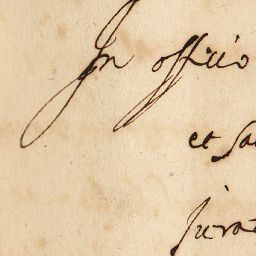 In officio
et sa
jurat